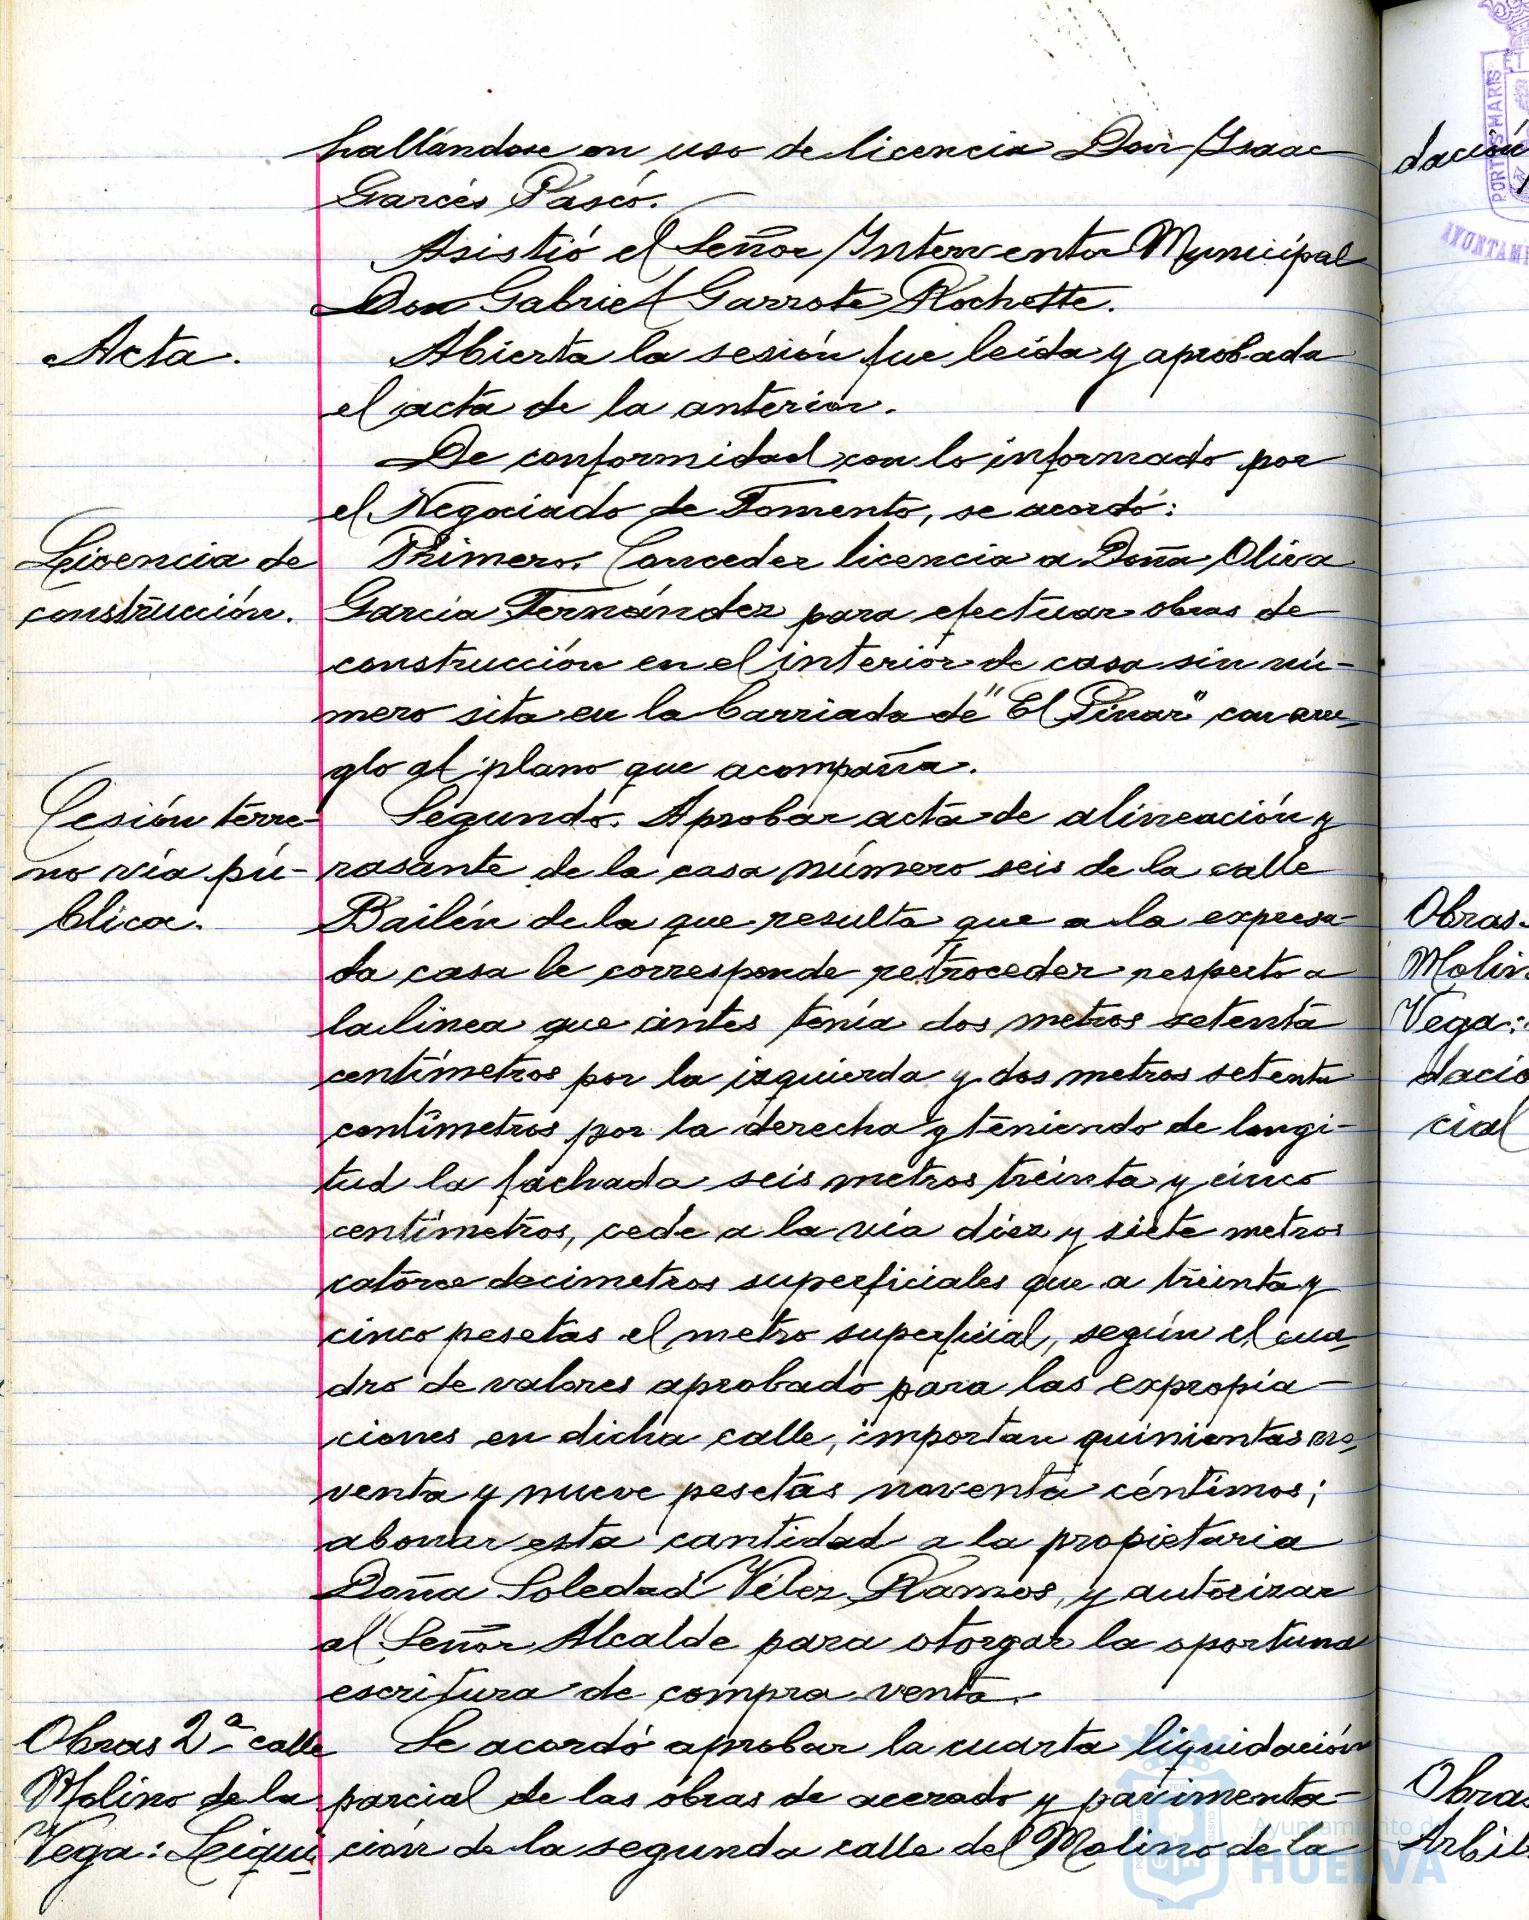 hallándose en uso de licencia Don Isaac
Garcés Pascó.
Asistió el Señor Interventor Municipal
Don Gabriel Garrote Rochette.
Acta.
Abierta la sesión fue leída y aprobada
el acta de la anterior.
De conformidad con lo informado por
el Negociado de Fomento, se acordó:
Licencia de
construcción.
Primero. Conceder licencia a Doña Oliva
García Fernández para efectuar obras de
construcción en el interior de casa sin nú-
mero sita en la barriada de "El Pinar" con arre-
glo al plano que acompaña.
Cesión terre-
no vía pú-
blica.
Segundo. Aprobar acta de alineación y
rasante de la casa número seis de la calle
Bailén de la que resulta que a la expresa-
da casa le corresponde retroceder respecto a
la línea que antes tenía dos metros setenta
centímetros por la izquierda y dos metros setenta
centímetros por la derecha y teniendo de longi-
tud la fachada seis metros treinta y cinco
centímetros, cede a la vía diez y siete metros
catorce decimetros superficiales que a treinta y
cinco pesetas el metro superficial, según el cua-
dro de valores aprobado para las expropia-
ciones en dicha calle, importan quinientas no-
venta y nueve pesetas noventa céntimos;
abonar esta cantidad a la propietaria
Doña Soledad Vélez Ramos, y autorizar
al Señor Alcalde para otorgar la oportuna
escritura de compra venta.
Obras 2ª calle
Molino de la
Vega: Liqui-
Se acordó aprobar la cuarta liquidación
parcial de las obras de acerado y pavimenta-
ción de la segunda calle del Molino de la
dación
Obras
Molin
Vega:
dació
cial
Obras
Arbi
PORTUS MARIS
AYUNTAMI
Ayuntamiento de
HUELVA